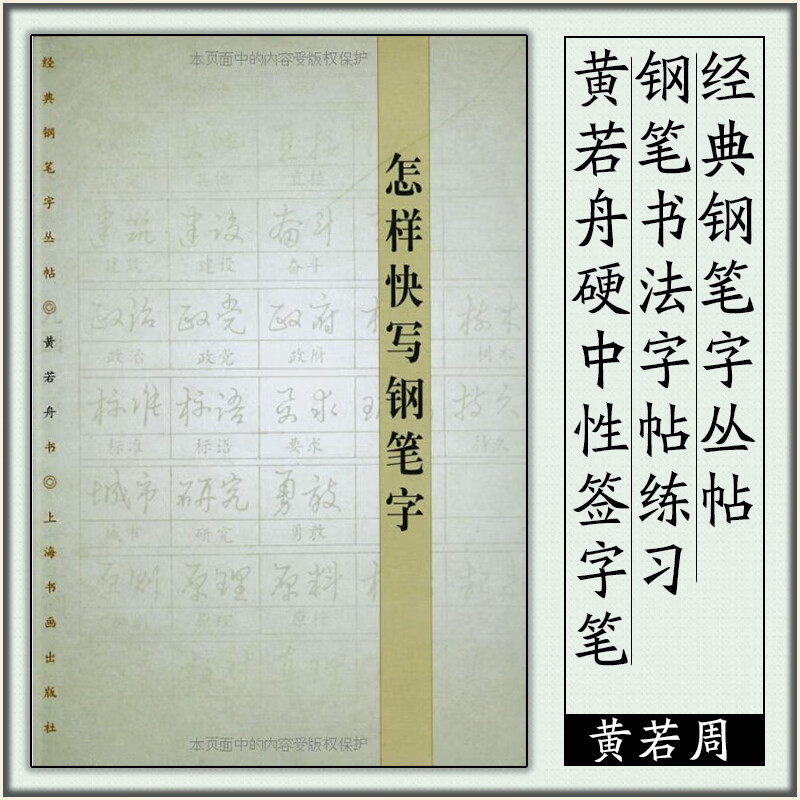 本页面中的内容受版权保护
经典钢笔字丛帖◎黄若舟书◎上海书画出版社
怎样快写钢笔字
建筑 建设 奋斗
建设 奋斗
政治 政党 政府
政治 政党 政府
标准 标语 要求 持久
标准 标语 要求
城市 研究 勇敢
城市 研究 勇敢
原则 原理 原料
本页面中的内容受版权保护
经典钢笔字丛帖
钢笔书法字帖练习
黄若舟硬中性签字笔
黄若周